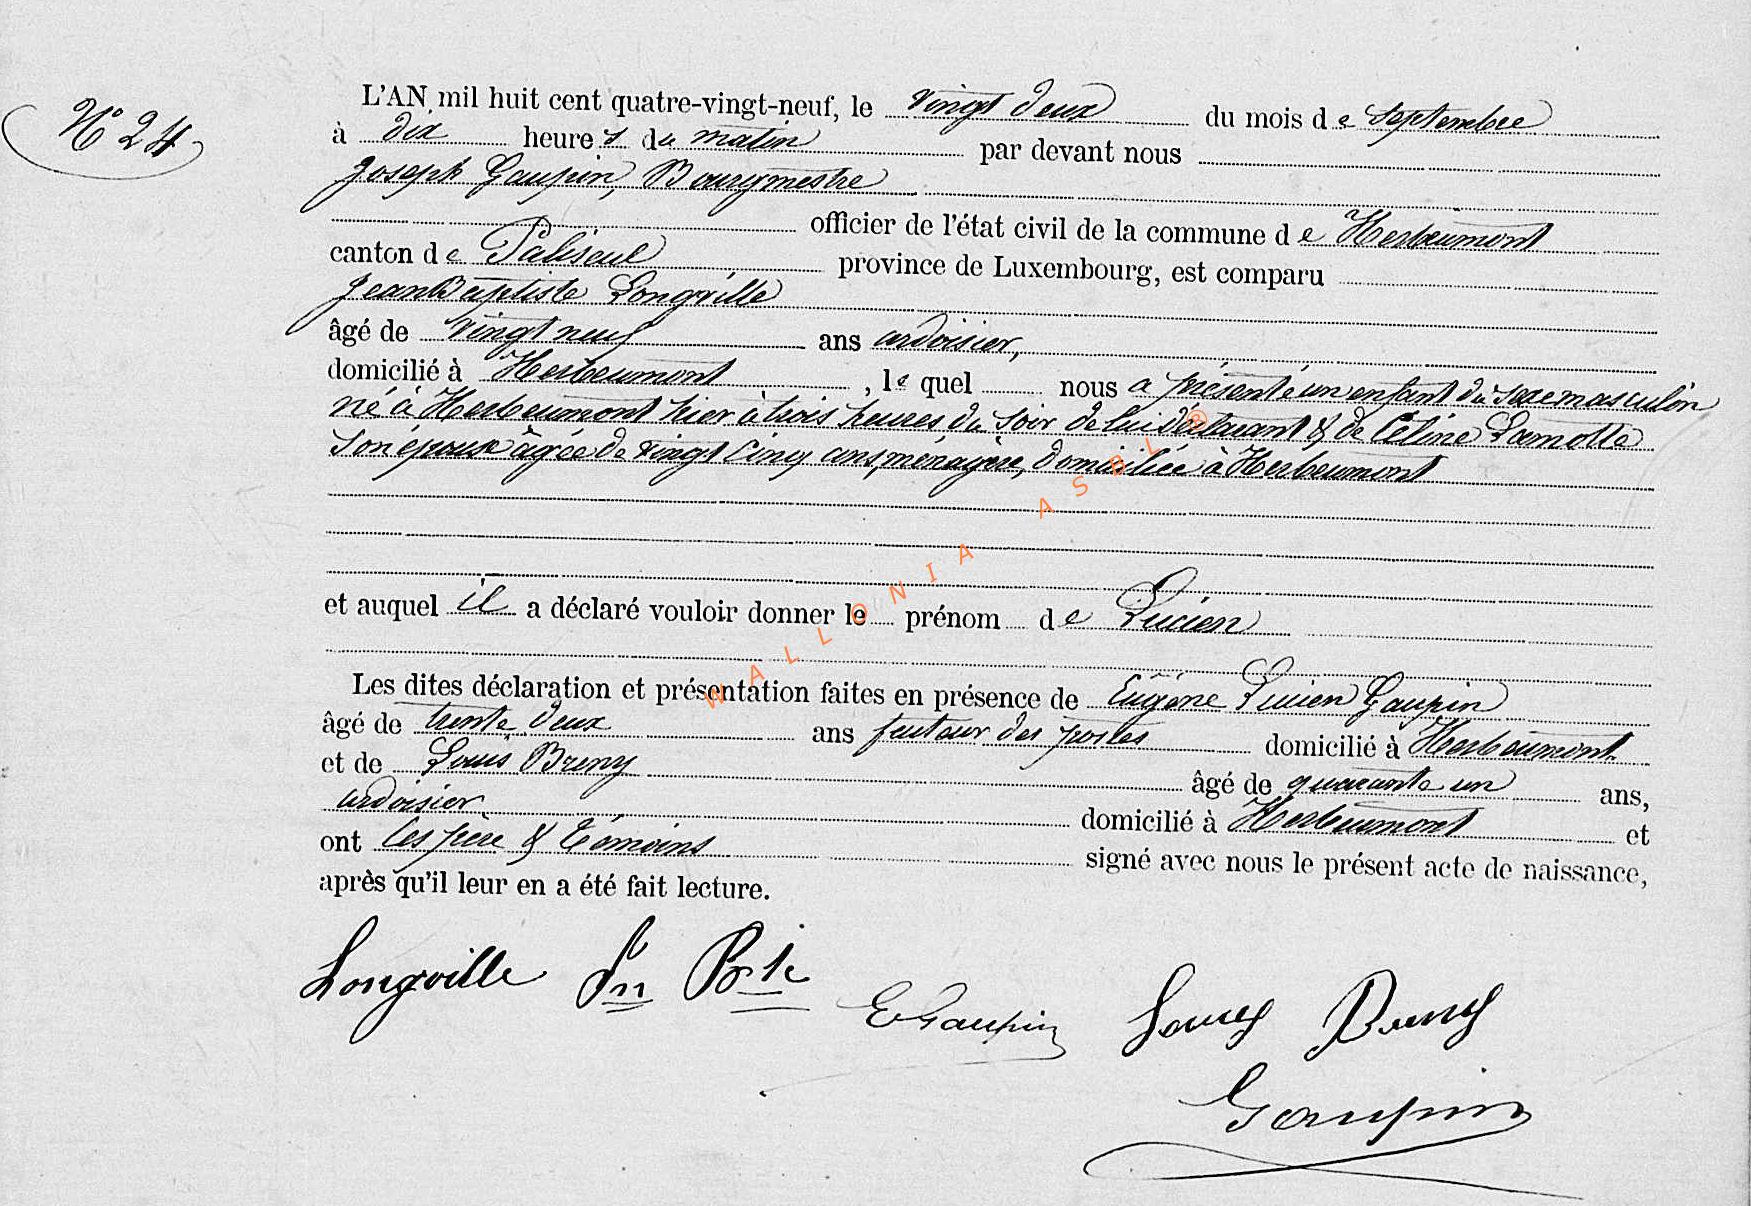 N° 24
L'AN mil huit cent quatre-vingt-neuf, le vingt deux du mois de septembre
à dix heures du matin par devant nous
Joseph Gaupin, Bourgmestre
officier de l'état civil de la commune de Herbeumont
canton de Paliseul province de Luxembourg, est comparu
Jean Baptiste Longville
âgé de vingt neuf ans ardoisier,
domicilié à Herbeumont, le quel nous a présenté un enfant du sexe masculin
né à Herbeumont hier à trois heures du soir de lui déclarant & de Céline Lamotte
son épouse âgée de vingt cinq ans, ménagère, domiciliée à Herbeumont
et auquel il a déclaré vouloir donner le prénom de Lucien
Les dites déclaration et présentation faites en présence de Eugène Lucien Gaupin
âgé de trente deux ans facteur des postes domicilié à Herbeumont
et de Louis Breny âgé de quarante un ans,
ardoisier domicilié à Herbeumont et
ont les père & témoins signé avec nous le présent acte de naissance,
après qu'il leur en a été fait lecture.
Longville Jn Bte
EGaupin
Louis Breny
Gaupin
WALLONIA ASBL ®